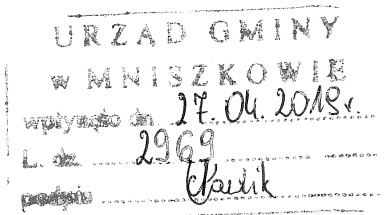 URZĄD GMINY
w MNISZKOWIE
wpłynęło dn. 27.04.2018r.
L. dz. 2969
podpis